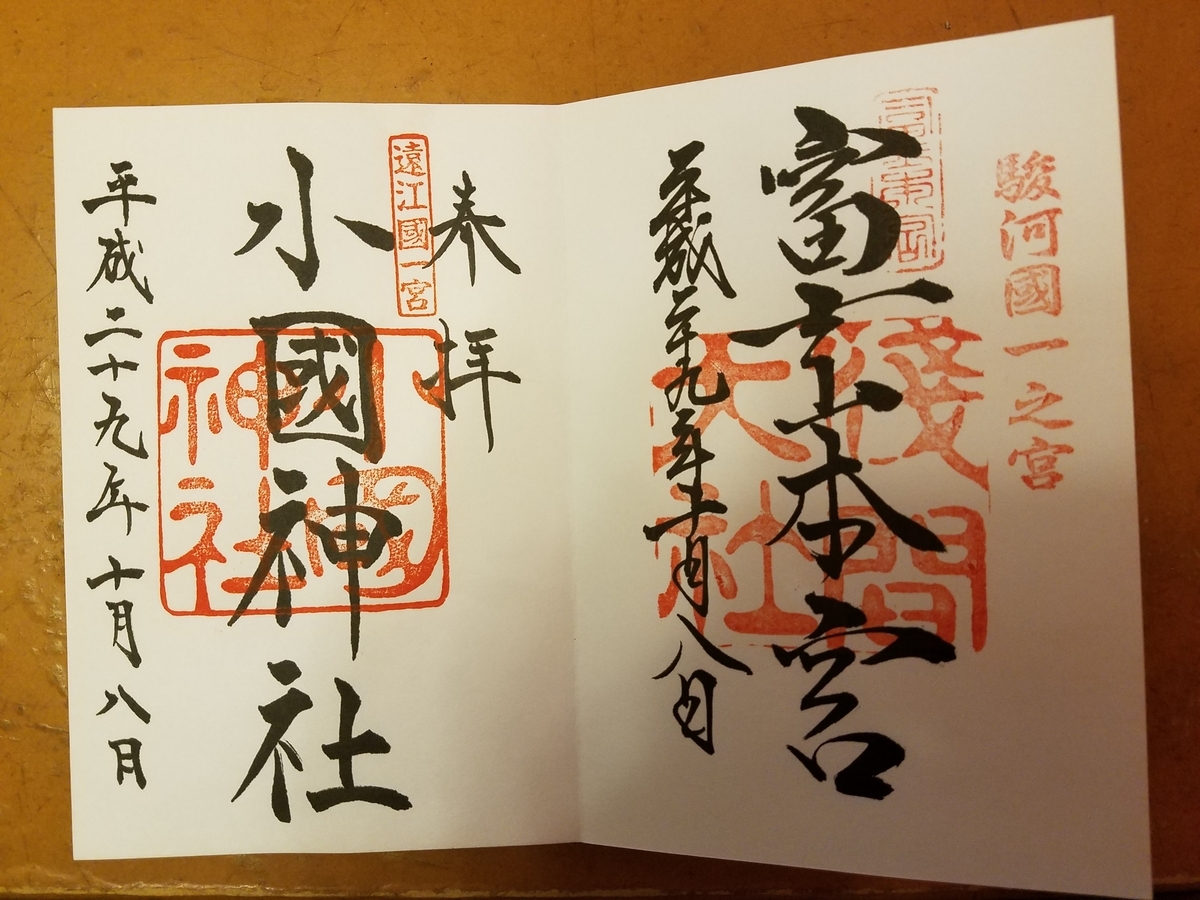 駿河國一之宮
富士山本宮
淺間大社
平成二十九年十月八日
奉拝
遠江國一宮
小國神社
小國神社
平成二十九年十月八日